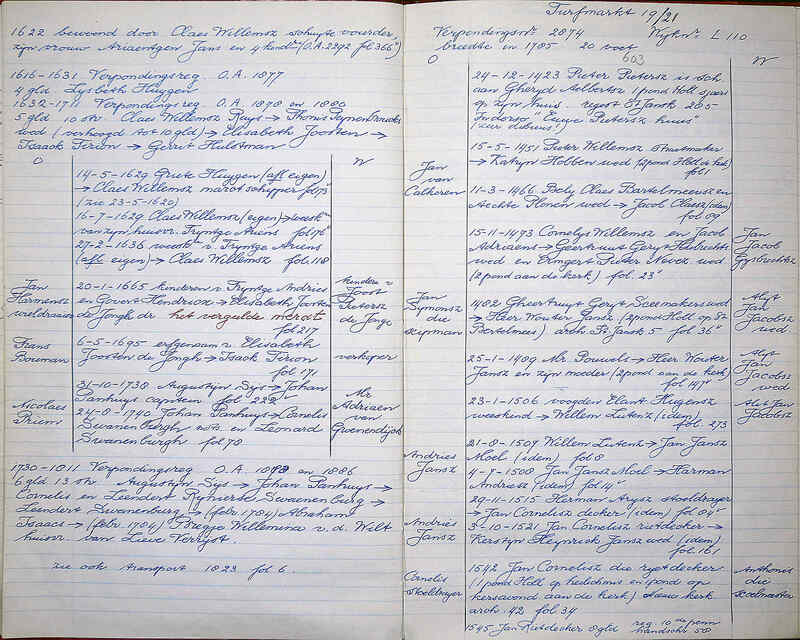 1622 bewoond door Claes Willemsz schuyte voerder,
zijn vrouw Ariaentgen Jans en 4 kind. (O.A. 2292 fol 366v)
1616-1631 Verpondingsreg. O.A. 1877
4 gld. Lysbeth Huygen
1632-1711 Verpondingsreg. O.A. 1878 en 1880
5 gld 10 st. Claes Willemsz Ruys → Thonis Pijnenbrouck
wed (verhoogd tot 10 gld) → Elisabeth Joosten →
Isaack Terion → Gerrit Hulstman
O W
14-5-1629 Griete Huygen (aff. eigen)
→ Claes Willemsz marctschipper fol 73v
(zie 23-5-1620)
16-7-1629 Claes Willemsz (eigen) → weesk.
van zijn huisvr. Tryntge Ariens fol 76v
27-2-1636 weesk. v. Tryntge Ariens
(aff. eigen) → Claes Willemsz fol. 118
Jan
Harmensz
weldraaier
20-1-1665 kinderen v Tryntge Andries
en Govert Hendricx → Elisabeth Joosten
de Jongh dr het vergulde merct
fol 217
kinderen v
Joost
Pietersz
de Jonge
Frans
Bouman
6-5-1695 erfgenam v. Elisabeth
Joosten de Jongh → Isack Terion
fol 171
verkoper
31-10-1738 Augustijn Sys → Johan
Panhuys capitein fol. 222v
Nicolaes
Priem
24-8-1740 Johan Panhuys → Cornelis
Swanenburgh wds. en Leonard
Swanenburgh fol 78
Mr
Adriaen
van
Groenendijck
1730-1811 Verpondingsreg. O.A. en 1886
6 gld 13 st. Augustijn Sys → Johan Panhuys →
Cornelis en Leendert Swaenenburg →
Leendert Swanenburg → (febr. 1784) Abraham
Isaacs → (febr. 1784) Bregge Willemina v. d. Wilt
huisvr. van Lieve Verryst.
zie ook transport 1823 fol 6.
Turfmarkt 19/21
Verpondingsnr. 2874 Wijknr. L 110
breedte in 1785 20 voet
603
O W
24-12-1423 Pieter Pietersz is sch.
aan Gheryd Aelbertsz 1 pond Holl sjaers
op zijn huis. regest St Janck 205
In dorso "Ewye Pietersz huus"
15-5-1451 Pieter Willemsz
→ Katryn Hobben wed (2 pond Holl de kerk)
fol 1
Jan
van
Calkeren
11-3-1466 Bely Claes Bartelmeeusz en
Aechte Florien wed → Jacob Claesz (idem)
fol 09
15-11-1473 Cornelys Willemsz en Jacob
Adriaens → Geertruut Geryt Heinricx
wed en Emgert Pieter Novck wed
(2 pond aan de kerk) fol. 23v
Jan
Jacob
Gysbrechtsz
Jan
Symonsz
die
scipman
1482 Gheertruyt Geryt Saemakers wed
→ Heer Wouter Jansz (2 pond Holl op St
Bertelmees) arch. St Janck 5 fol 36v
Alyt
Jan
Jacobsz
wed
25-1-1489 Mr. Pouwels → Heer Wouter
Jansz en zijn moeder (2 pond aan de kerk)
fol 147v
Alyt
Jan
Jacobsz
wed
23-1-1506 voogden Claut Huigensz
weeskind → Willem Lutensz (idem)
fol. 273
Alyt Jan
Jacobsz
Andries
Jansz
21-8-1507 Willem Lutensz → Jan Jansz
Moel (idem) fol 8
4-7-1508 Jan Jansz Moel → Harman
Andriesz (idem) fol 14v
29-11-1515 Herman Arysz stoeldrayer
→ Jan Cornelisz decker (idem) fol 84v
Andries
Jansz
3-10-1521 Jan Cornelisz rietdecker →
Kerstyn Heynrick Jansz wed. (idem)
fol. 161
Cornelis
stoeldrayer
1542 Jan Cornelisz die rytdecker
(1 pond Holl op en 1 pond op
kersavond aan de kerk) Nieuwe kerk
arch. 42 fol 34
Anthonis
die
scoelmaester
1545 Jan Rietdecker 8 gld reg. 10e penn
handschr. 58